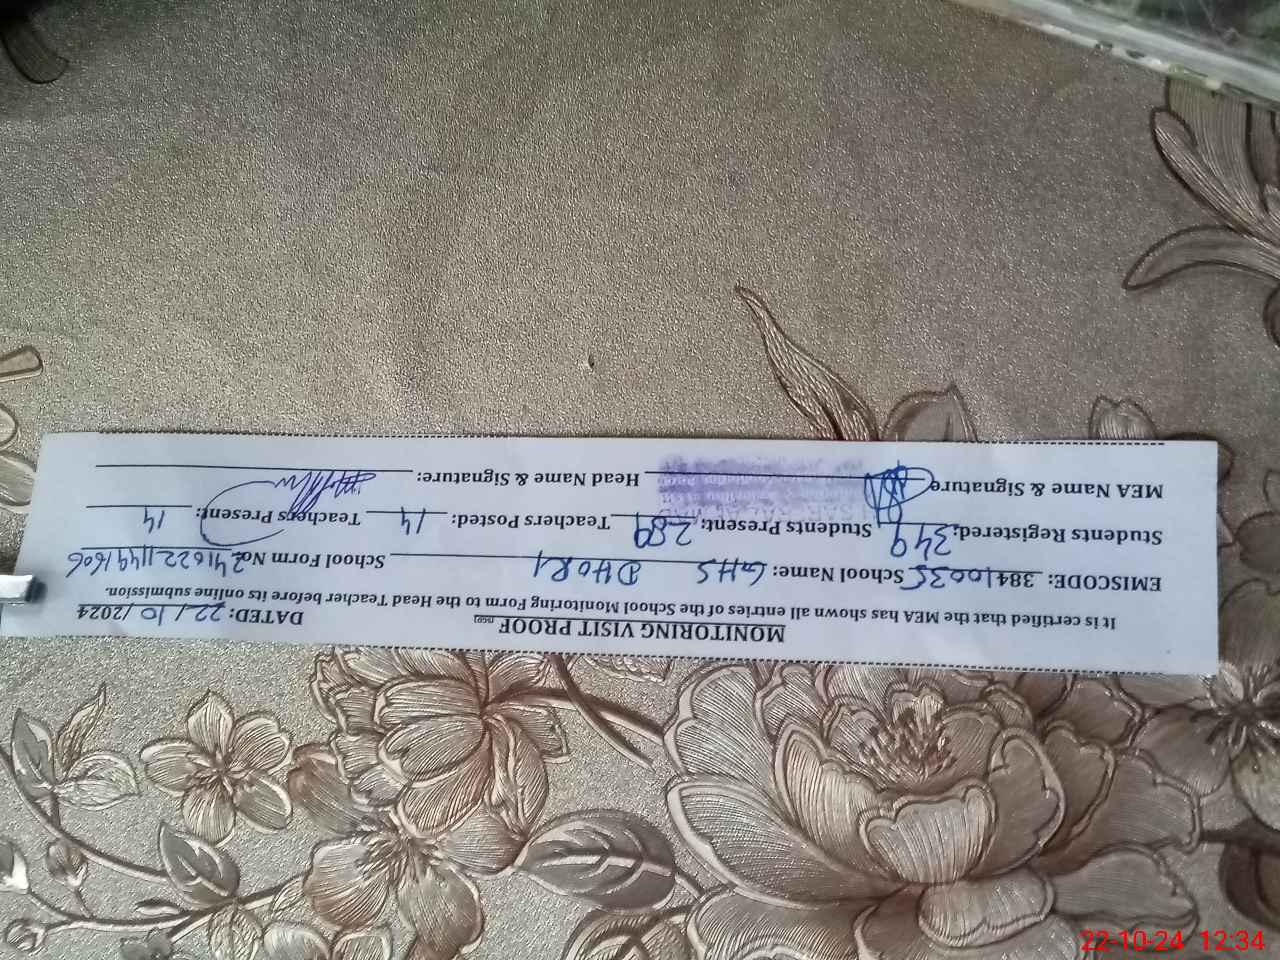 MONITORING VISIT PROOF
DATED: 22/10/2024
It is certified that the MEA has shown all entries of the School Monitoring Form to the Head Teacher before its online submission.
EMISCODE: 38410035 School Name: GHS DHORI School Form No: 24162211491606
Students Registered: 349 Students Present: 289 Teachers Posted: 14 Teachers Present: 14
MEA Name & Signature Head Name & Signature:
22-10-24 12:34